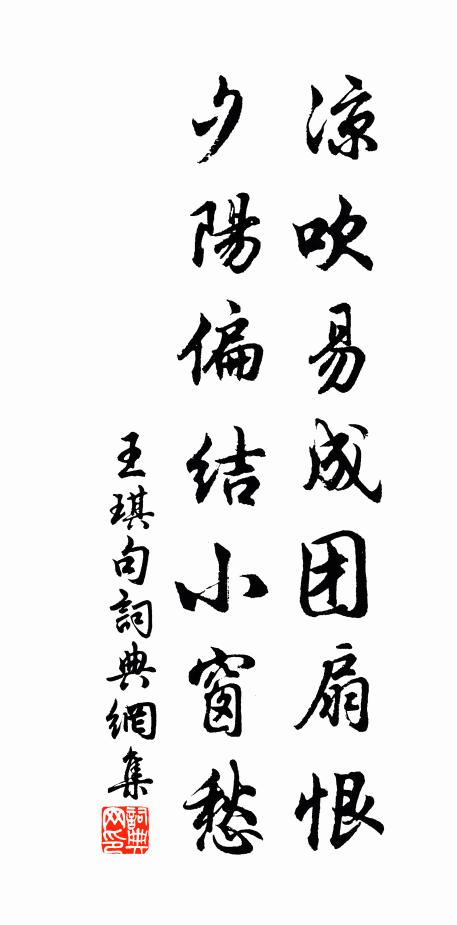 凉吹易成团扇恨
夕陽偏结小窗愁
王琪句詞典網集
詞典网印